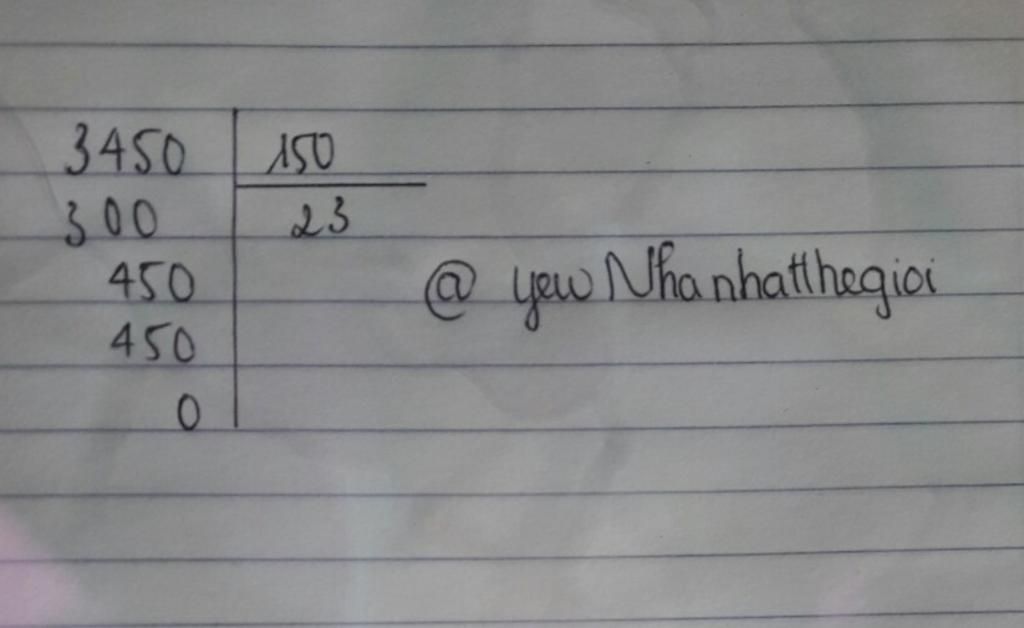 3450 150
300 23
450
@ yewNhanhatthegioi
450
0